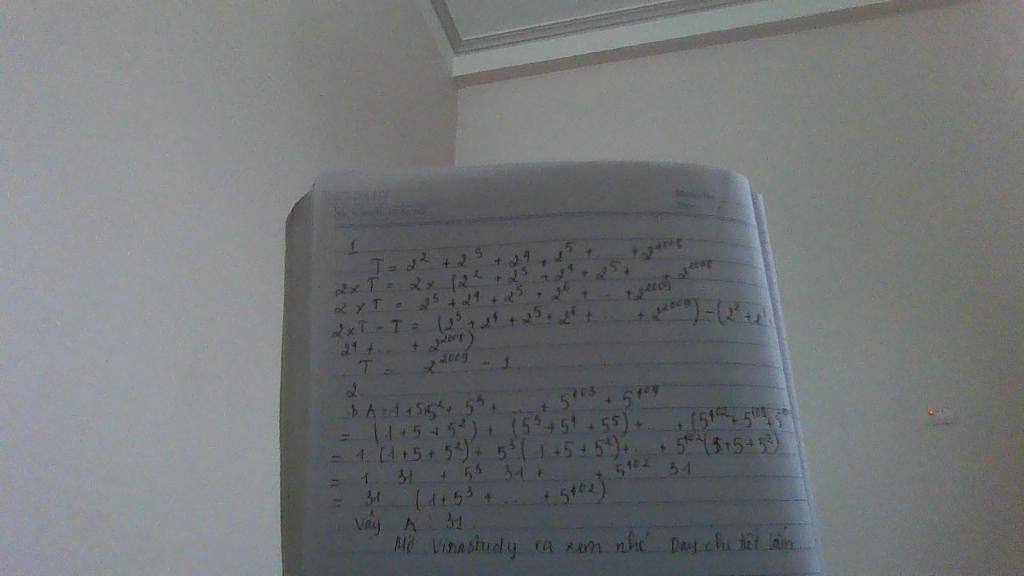 1
T = 2² + 2³ + 2⁴ + 2⁵ + ... + 2²⁰⁰⁸
2 x T = 2 x (2² + 2³ + 2⁴ + 2⁵ + ... + 2²⁰⁰⁸
2 x T = 2³ + 2⁴ + 2⁵ + 2⁶ + ... + 2²⁰⁰⁹
2xT - T = (2³ + 2⁴ + 2⁵ + 2⁶ + ... + 2²⁰⁰⁹) - (2² + 2³
2⁴ + ... + 2²⁰⁰⁸)
T = 2²⁰⁰⁹ - 1
2
b A = 1 + 5 + 5² + 5³ + ... + 5⁴⁰³ + 5⁴⁰⁴
= (1 + 5 + 5²) + (5³ + 5⁴ + 5⁵) + ... + (5⁴⁰² + 5⁴⁰³ + 5⁴
= 1 (1 + 5 + 5²) + 5³ (1 + 5 + 5²) + ... + 5⁴⁰² (1 + 5 + 5²)
= 1 31 + 5³ 31 + ... + 5⁴⁰² 31
= 31 (1 + 5³ + ... + 5⁴⁰²)
Vậy A 31
Mở Vinastudy ra xem nhé Dạy chi tiết lắm